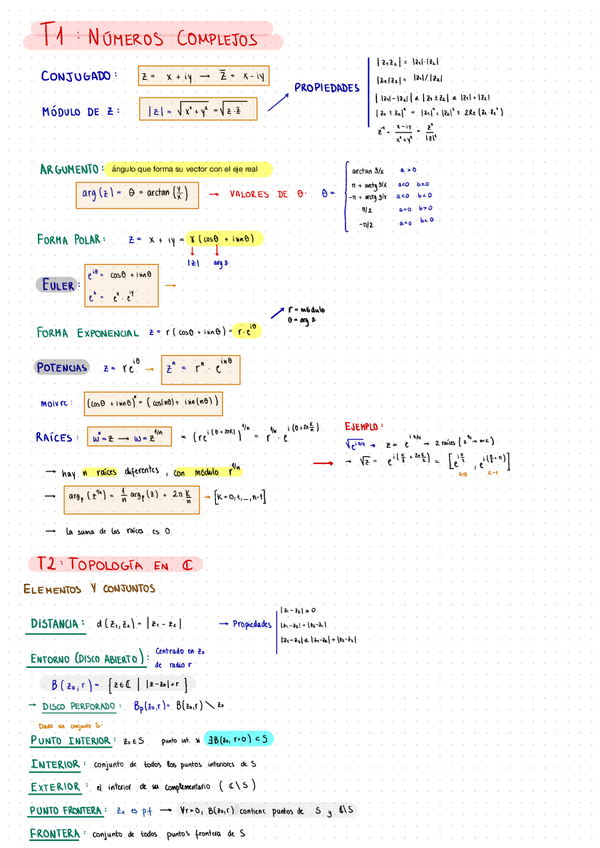 T1: NÚMEROS COMPLEJOS
CONJUGADO: z = x + iy → z̅ = x - iy
MÓDULO DE Z: |z| = √(x² + y²) = √(z · z̅)
PROPIEDADES
|z₁z₂| = |z₁|·|z₂|
|z₁/z₂| = |z₁|/|z₂|
||z₁|-|z₂|| ≤ |z₁ ± z₂| ≤ |z₁| + |z₂|
ARGUMENTO: ángulo que forma su vector con el eje real
arg(z) = θ = arctan(y/x) → VALORES DE θ: θ =
arctan y/x a>0
π + arctg y/x a<0 b>0
-π + arctg y/x a<0 b<0
π/2 a=0 b>0
-π/2 a=0 b<0
FORMA POLAR: z = x + iy = r(cosθ + i sinθ)
|z| arg z
EULER: e^{iθ} = cosθ + i sinθ
e^z = e^x · e^{iy} →
r = módulo
θ = arg z
FORMA EXPONENCIAL z = r(cosθ + i sinθ) = r·e^{iθ}
POTENCIAS z = re^{iθ} → zⁿ = rⁿ · e^{inθ}
moivre: (cosθ + i sinθ)ⁿ = (cos(nθ) + i sin(nθ))
RAÍCES: wⁿ = z → w = z^{1/n} = (re^{i(θ+2πK)})^{1/n} = r^{1/n} · e^{i(θ+2πK)/n}
→ hay n raíces diferentes, con módulo r^{1/n}
→ arg_p(z^{1/n}) = 1/n arg_p(z) + 2π K/n → [K=0,1,...,n-1]
→ la suma de las raíces es 0
EJEMPLO:
2 raíces
K=0 K=1
T2: TOPOLOGÍA EN ℂ
ELEMENTOS Y CONJUNTOS
DISTANCIA: d(z₁,z₂) = |z₁ - z₂| → Propiedades
|z₁-z₂| = |z₂-z₁|
ENTORNO (DISCO ABIERTO): Centrado en z₀
de radio r
B(z₀,r) = {z∈ℂ | |z-z₀|<r}
→ DISCO PERFORADO: Bp(z₀,r) = B(z₀,r) \ z₀
Dado un conjunto S:
PUNTO INTERIOR: z₀∈S punto int. si ∃B(z₀, r>0) ⊂ S
INTERIOR: conjunto de todos los puntos interiores de S
EXTERIOR: el interior de su complementario (ℂ\S)
PUNTO FRONTERA: z₀ es p.f → ∀r>0, B(z₀,r) contiene puntos de S y ℂ\S
FRONTERA: conjunto de todos puntos frontera de S